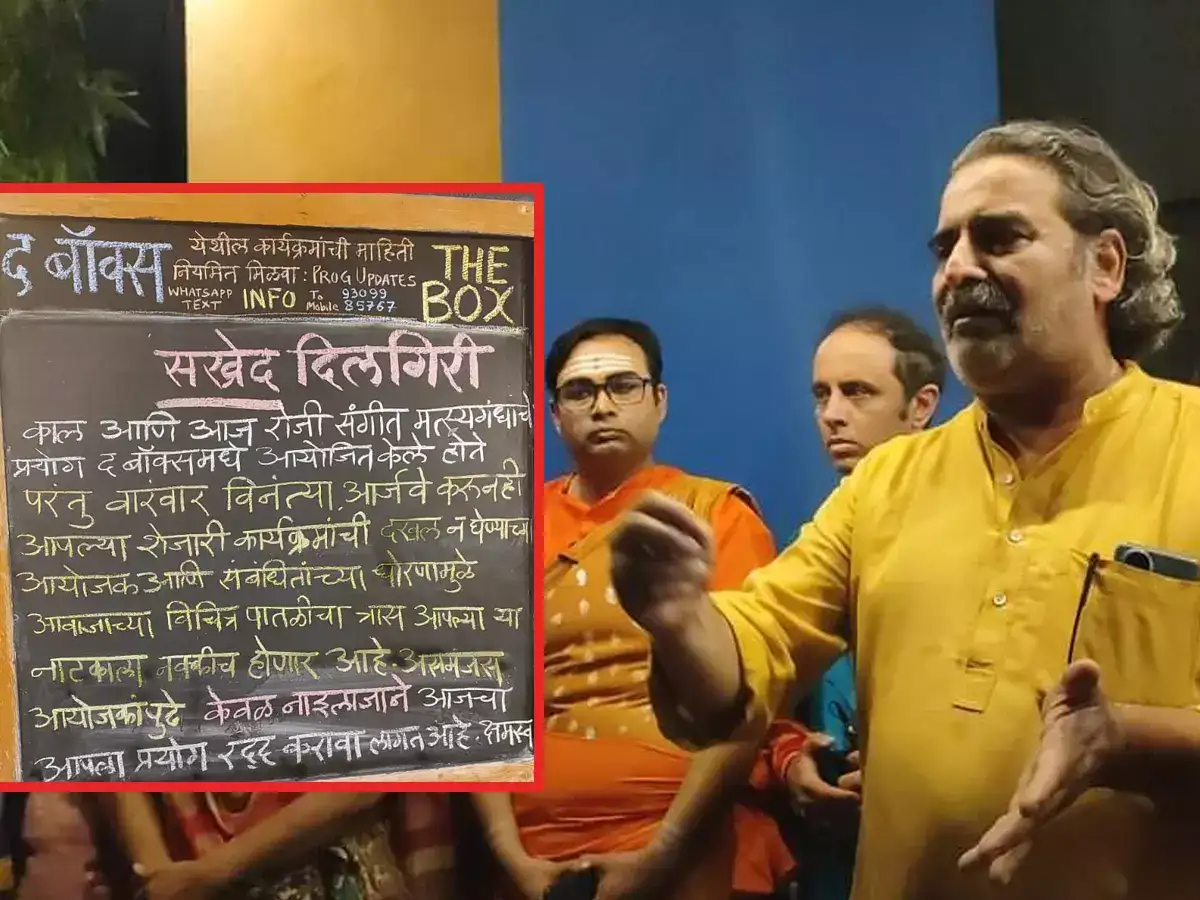 द बॉक्स
येथील कार्यक्रमांची माहिती
नियमित मिळवा : PROG UPDATES
WHATSAPP TEXT INFO To Mobile 93099 85767
THE BOX
सखेद दिलगिरी
काल आणि आज रोजी संगीत मत्स्यगंधाचे
प्रयोग द बॉक्समधे आयोजित केले होते
परंतु वारंवार विनंत्या, आर्जवे करूनही
आपल्या शेजारी कार्यक्रमांची दखल न घेण्याच्या
आयोजक आणि संबंधितांच्या धोरणामुळे
आवाजाच्या विचित्र पातळीचा त्रास आपल्या या
नाटकाला नक्कीच होणार आहे. असमंजस
आयोजकांपुढे केवळ नाइलाजाने आजचा
आपला प्रयोग रद्द करावा लागत आहे.